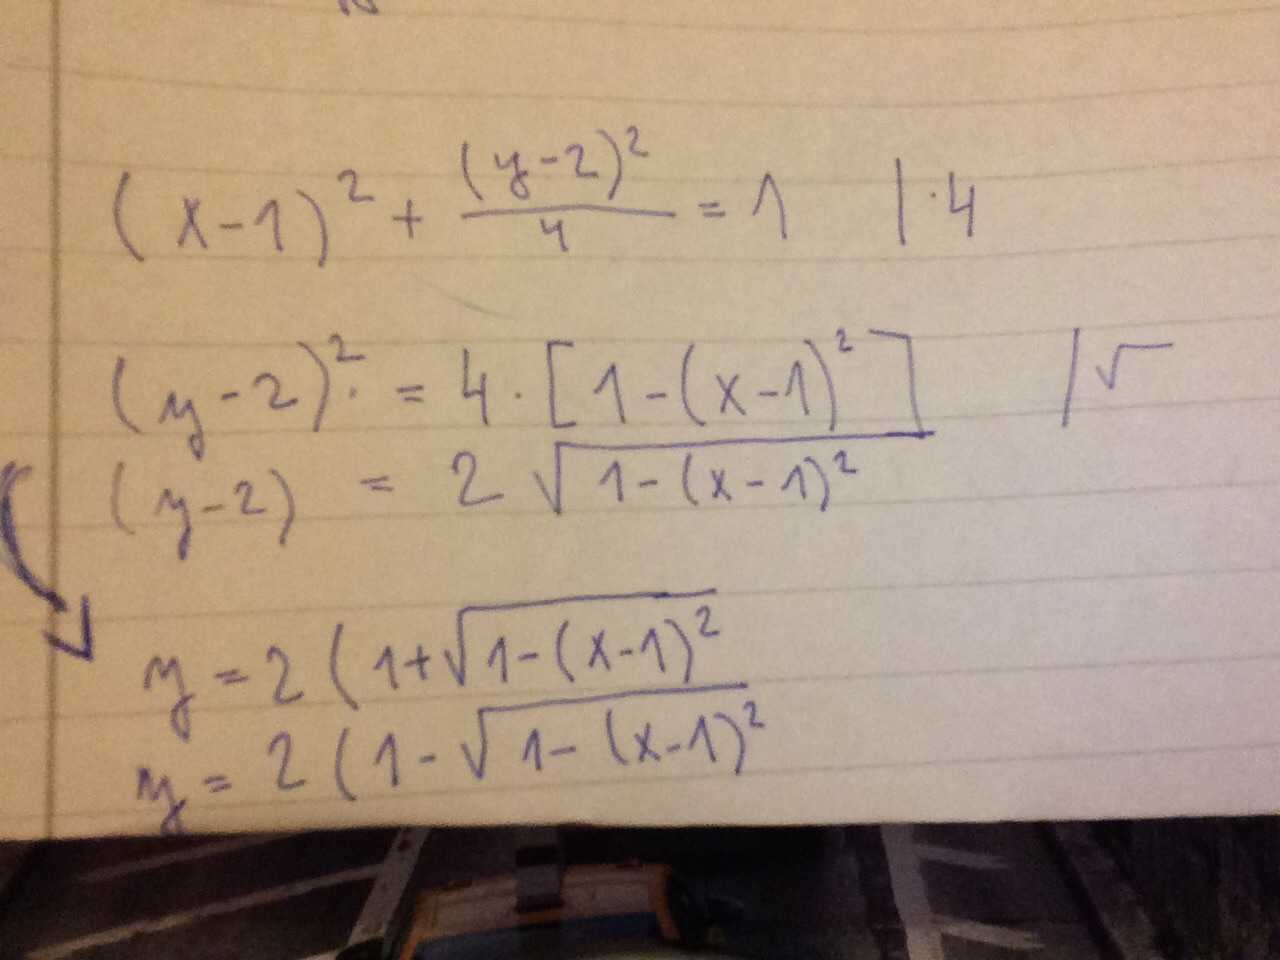 (x-1)² + (y-2)²/4 = 1 | · 4
(y-2)² · = 4 · [1-(x-1)²] | √
(y-2) = 2 √1-(x-1)²
y = 2 (1+√1-(x-1)²
y = 2 (1-√1-(x-1)²